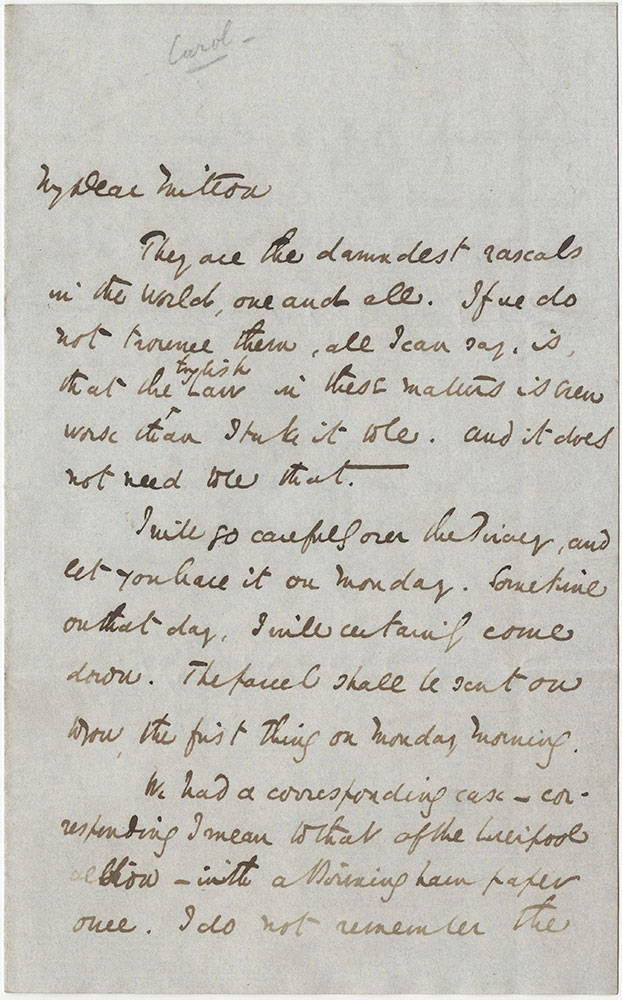 Carol
My Dear Mitton
They are the damndest rascals
in the world, one and all. If we do
not trounce them, all I can say, is,
that the English Law in these matters is even
worse than I take it to be. And it does
not need to be that.
I will go carefully over the Piracy, and
let you have it on Monday. Sometime
on that day, I will certainly come
down. The parcel shall be sent on
to you, the first thing on Monday Morning.
We had a corresponding case – cor-
responding I mean to that of the Liverpool
Albion – with a Birmingham paper
once. I do not remember the